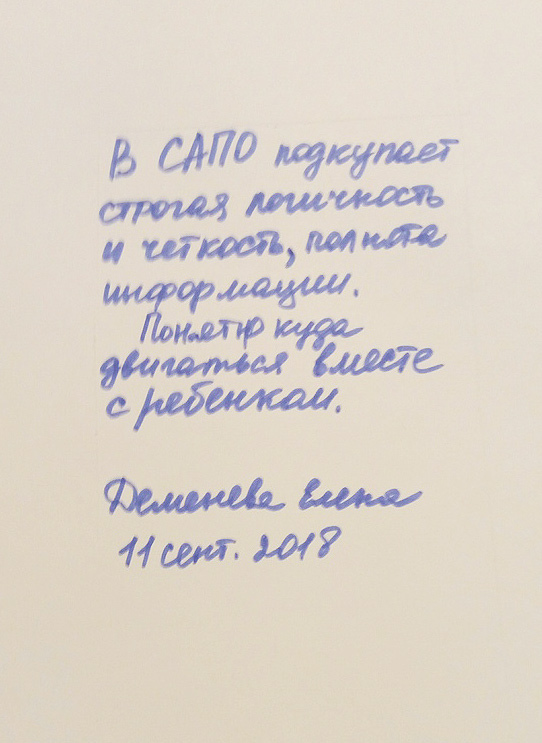 В САПО подкупает
строгая логичность
и четкость, полнота
информации.
Понятно куда
двигаться вместе
с ребенком.
Деменева Елена
11 сент. 2018